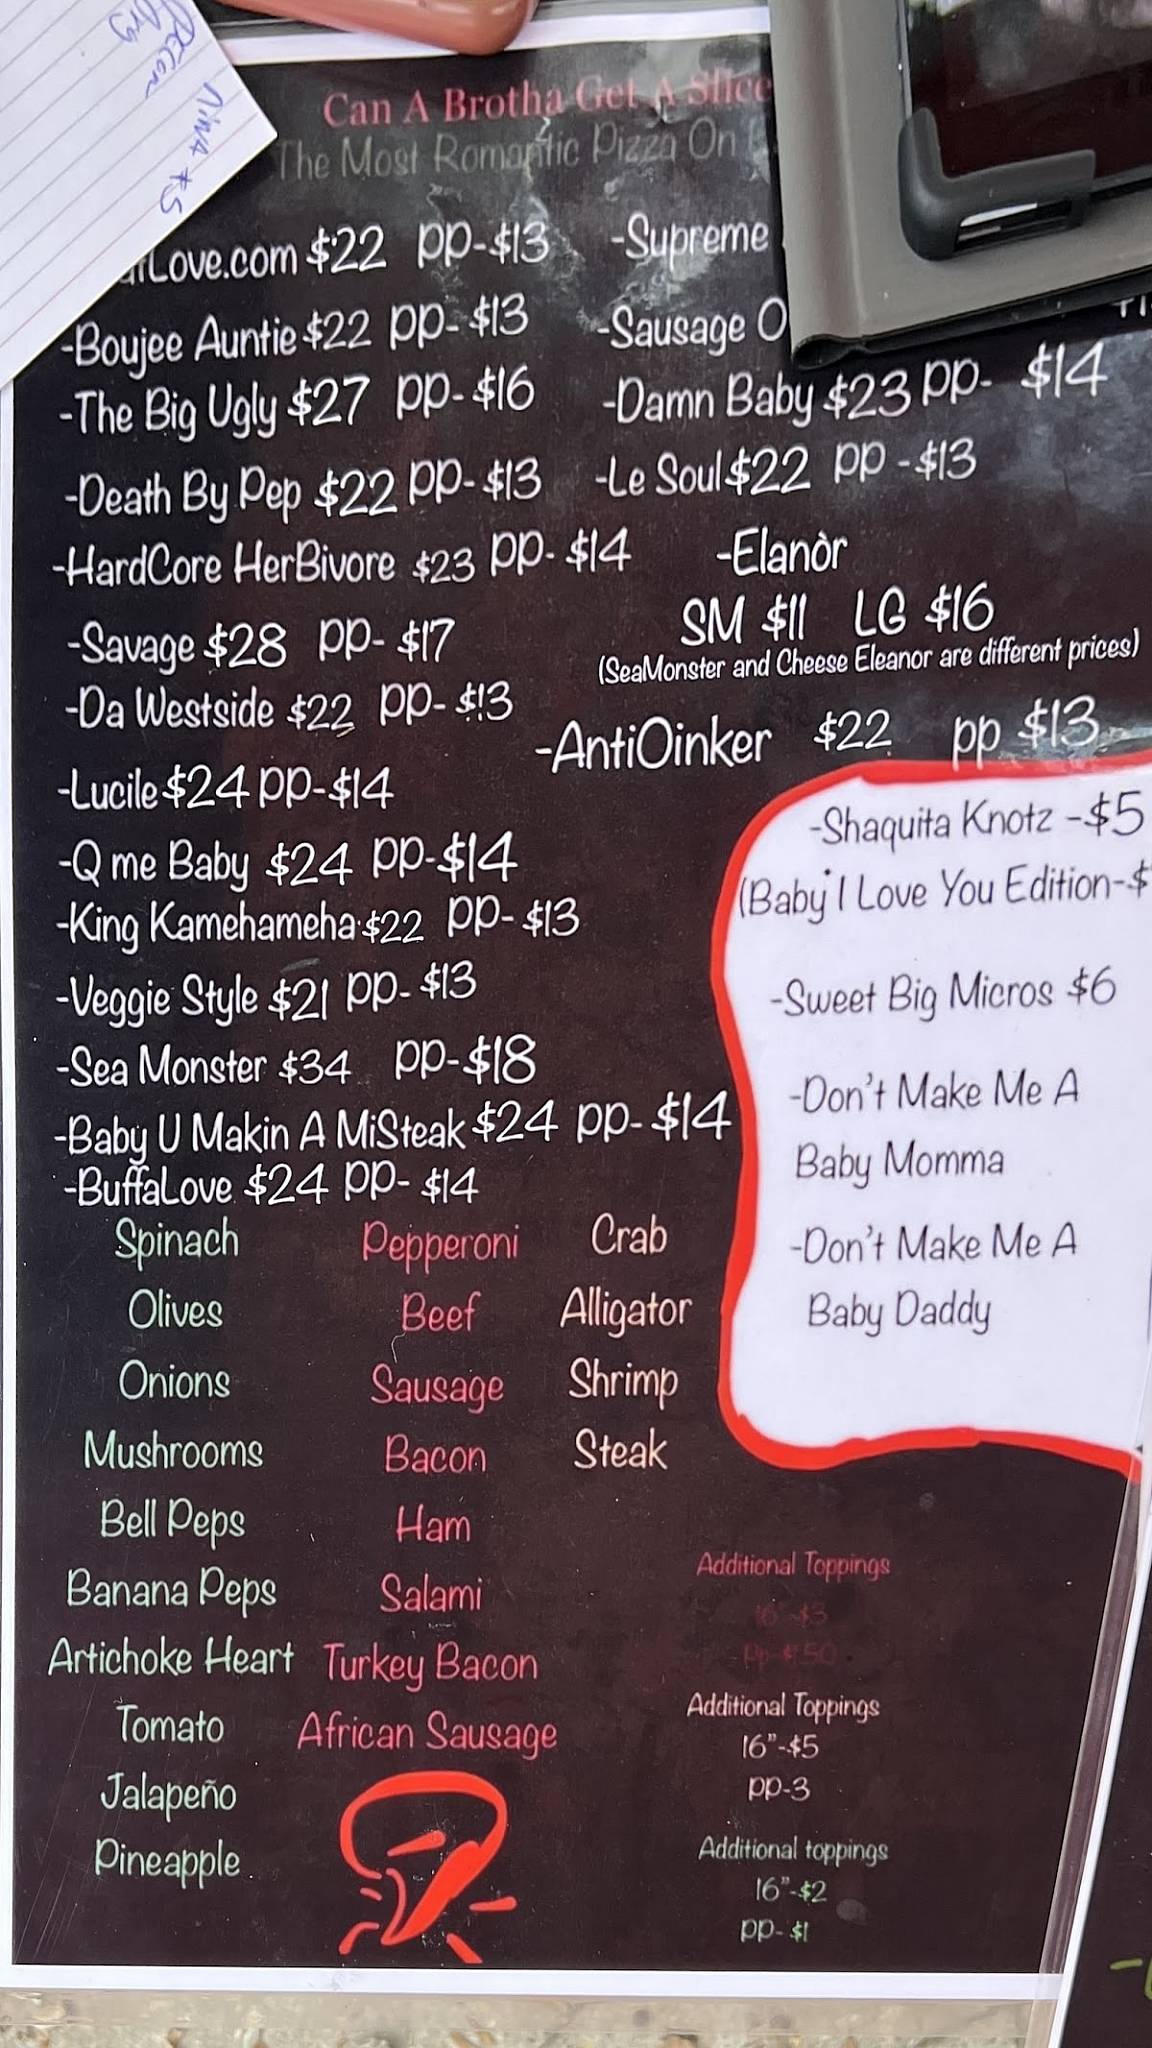 Nina *5
Can A Brotha Get A Slice
The Most Romantic Pizza On
Love.com $22 pp-$13
-Boujee Auntie $22 pp-$13
-The Big Ugly $27 pp-$16
-Death By Pep $22 pp-$13
-HardCore HerBivore $23 pp-$14
-Savage $28 pp-$17
-Da Westside $22 pp-$13
-Lucile $24 pp-$14
-Q me Baby $24 pp-$14
-King Kamehameha $22 pp-$13
-Veggie Style $21 pp-$13
-Sea Monster $34 pp-$18
-Baby U Makin A MiSteak $24 pp-$14
-BuffaLove $24 pp-$14
-Supreme
-Sausage
-Damn Baby $23 pp-$14
-Le Soul $22 pp-$13
-Elanòr
SM $11 LG $16
(SeaMonster and Cheese Eleanor are different prices)
-AntiOinker $22 pp $13
-Shaquita Knotz -$5
(Baby I Love You Edition-$
-Sweet Big Micros $6
-Don't Make Me A
Baby Momma
-Don't Make Me A
Baby Daddy
Spinach
Olives
Onions
Mushrooms
Bell Peps
Banana Peps
Artichoke Heart
Tomato
Jalapeño
Pineapple
Pepperoni
Beef
Sausage
Bacon
Ham
Salami
Turkey Bacon
African Sausage
Crab
Alligator
Shrimp
Steak
Additional Toppings
16"-$3
pp-$1.50
Additional Toppings
16"-$5
pp-3
Additional toppings
16"-$2
pp-$1